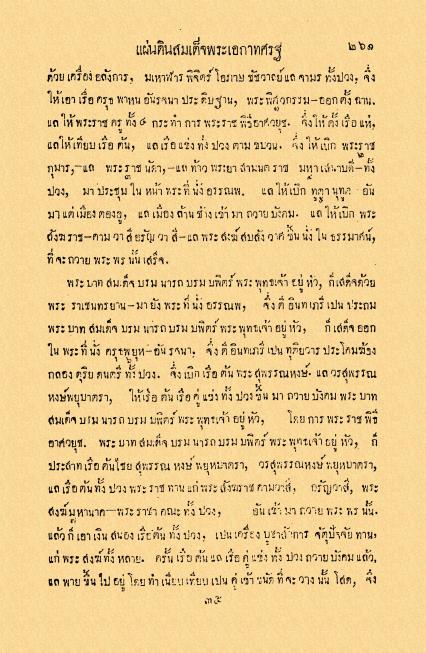 แผ่นดินสมเด็จพระเอกาทศรฐ ๒๖๑
ด้วย เครื่อง อลังการ, มหาฬาร พิจิตร์ โอภาษ ชัชวาลย์ แล จามร ทั้งปวง, จึ่ง
ให้ เอา เรือ ครุธ พาหน อันรจนา ประดิบฐาน, พระพิศวกรรม—ออก ตั้ง ฉาน.
แล ให้ พระราช ครู ทั้ง ๔ กระทำ การ พระราช พิธีอาศวยุช. จึ่งให้ ตั้ง เรือ แห่,
แลให้เทียบ เรือ ต้น, แล เรือ แข่ง ทั้ง ปวง ตาม ขบวน. จึ่ง ให้ เบิก พระราช
กุมาร,—แล พระราช นัดา,—แล ท้าว พระยา สามนตราช มหาเสนาบดี—ทั้ง
ปวง, มา ประชุม ใน หน้า พระที่ นั่ง อรรณพ. แล ให้ เบิก ทูตานุทูต อัน
มา แต่ เมือง ตองอู, แล เมือง ล้าน ช้าง เข้า มา ถวาย บังคม. แล ให้ เบิก พระ
สังฆราช—คาม วา สี อรัญ วา สี—แล พระ สงฆ์ สบสังวาศ ขึ้น นั่ง ใน ธรรมาศน์,
ที่ จะ ถวาย พระ พร นั้น เสร็จ.
พระ บาท สมเด็จ บรม นารถ บรม บพิตร์ พระ พุทธเจ้า อยู่ หัว, ก็ เสด็จด้วย
พระ ราเชนทรยาน—มา ยัง พระ ที่ นั่ง อรรณพ, จึ่ง ตี อินทเภรี เปน ประถม
พระ บาท สมเด็จ บรม นารถ บรม บพิตร์ พระ พุทธเจ้า อยู่ หัว, ก็ เสด็จ ออก
ใน พระ ที่ นั่ง ครุธพยูห—อัน รจนา. จึ่ง ตี อินทเภรี เปน ทุติยวาร ประโคมฆ้อง
กลอง ดุริย ดนตรี ทั้ง ปวง. จึ่ง เบิก เรือ ต้น พระ สุพรรณหงษ์. แล วรสุพรรณ
หงษ์พยุบาตรา, ให้ เรือ ต้น เรือ คู่ แข่ง ทั้ง ปวง ขึ้น มา ถวาย บังคม พระ บาท
สมเด็จ บรม นารถ บรม บพิตร์ พระ พุทธเจ้า อยู่ หัว, โดย การ พระราช พิธี
อาศวยุช. พระ บาท สมเด็จ บรม นารถ บรม บพิตร์ พระ พุทธเจ้า อยู่ หัว, ก็
ประสาท เรือ ต้นไชย สุพรรณ หงษ์ พยุหบาตรา, วรสุพรรณหงษ์ พยุหบาตรา,
แล เรือ ต้น ทั้ง ปวง พระราช ทาน แก่ พระ สังฆราช คามวาสี, อรัญวาสี, พระ
สงฆ์มหานาค—พระราชา คณะ ทั้ง ปวง, อัน เข้า มา ถวาย พระ พร นั้น.
แล้ว ก็ เอา เงิน สนอง เรือต้น ทั้ง ปวง, เปน เครื่อง บูชาสักการ จัตุปัจจัย ทาน,
แก่ พระ สงฆ์ ทั้ง หลาย. ครั้น เรือ ต้น แล เรือ คู่ แข่ง ทั้ง ปวง ถวาย บังคม แล้ว,
แล พาย ขึ้น ไป อยู่ โดย ทำ เนียบ เทียบ เปน คู่ เข้า ขนัด ที่ จะ วาง นั้น โสด, จึ่ง
๓๕